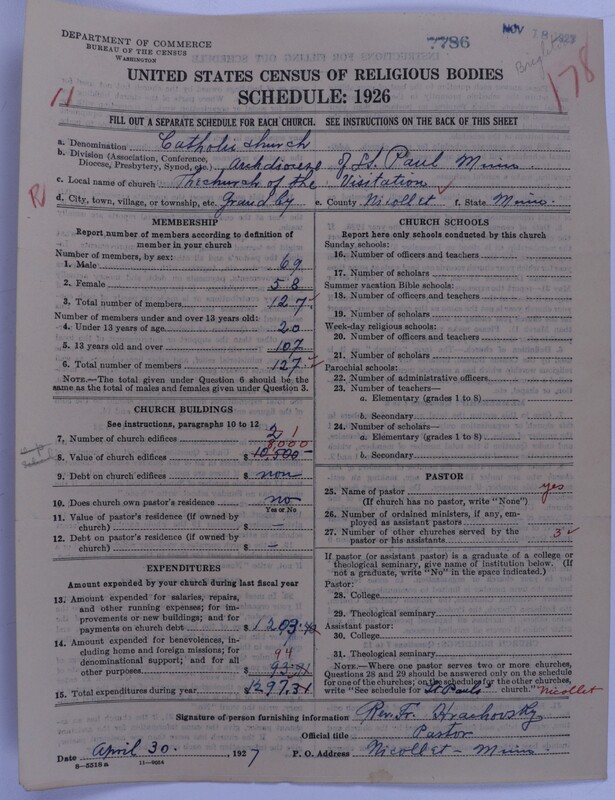 DEPARTMENT OF COMMERCE
BUREAU OF THE CENSUS
WASHINGTON
7786
NOV 28 1927
178
11
UNITED STATES CENSUS OF RELIGIOUS BODIES
SCHEDULE: 1926
FILL OUT A SEPARATE SCHEDULE FOR EACH CHURCH. SEE INSTRUCTIONS ON THE BACK OF THIS SHEET
a. Denomination Catholic church
b. Division (Association, Conference, Diocese, Presbytery, Synod, etc.) Archdiocese of St. Paul Minn
c. Local name of church The church of the Visitation
d. City, town, village, or township, etc. Grandby e. County Nicollet f. State Minn.
MEMBERSHIP
Report number of members according to definition of
member in your church
Number of members, by sex:
1. Male 69
2. Female 58
3. Total number of members 127
Number of members under and over 13 years old:
4. Under 13 years of age 20
5. 13 years old and over 107
6. Total number of members 127
NOTE.—The total given under Question 6 should be the
same as the total of males and females given under Question 3.
CHURCH BUILDINGS
See instructions, paragraphs 10 to 12
7. Number of church edifices 2 1
8,000
8. Value of church edifices $ 10,500
9. Debt on church edifices $ non
10. Does church own pastor's residence no
Yes or No
11. Value of pastor's residence (if owned by
church) $ —
12. Debt on pastor's residence (if owned by
church) $ —
EXPENDITURES
Amount expended by your church during last fiscal year
13. Amount expended for salaries, repairs,
and other running expenses; for im-
provements or new buildings; and for
payments on church debt $ 1203
14. Amount expended for benevolences, in-
cluding home and foreign missions; for
denominational support; and for all
94
other purposes $ 93.81
15. Total expenditures during year $ 1297.31
CHURCH SCHOOLS
Report here only schools conducted by this church
Sunday schools:
16. Number of officers and teachers
17. Number of scholars
Summer vacation Bible schools:
18. Number of officers and teachers
19. Number of scholars
Week-day religious schools:
20. Number of officers and teachers
21. Number of scholars
Parochial schools:
22. Number of administrative officers
23. Number of teachers—
a. Elementary (grades 1 to 8)
b. Secondary
24. Number of scholars—
a. Elementary (grades 1 to 8)
b. Secondary
PASTOR
25. Name of pastor yes
(If church has no pastor, write "None")
26. Number of ordained ministers, if any, em-
ployed as assistant pastors
27. Number of other churches served by the
pastor or his assistants 3
If pastor (or assistant pastor) is a graduate of a college or
theological seminary, give name of institution below. (If
not a graduate, write "No" in the space indicated.)
Pastor:
28. College
29. Theological seminary
Assistant pastor:
30. College
31. Theological seminary
NOTE.—Where one pastor serves two or more churches,
Questions 28 and 29 should be answered only on the schedule
for one of the churches; on the schedules for the other churches,
write "See schedule for St Pauls church." Nicollet
Signature of person furnishing information Rev. Fr. Hrachovsky
Official title Pastor
Date April 30. 1927 P. O. Address Nicollet - Minn.
8—5518a 11—9264